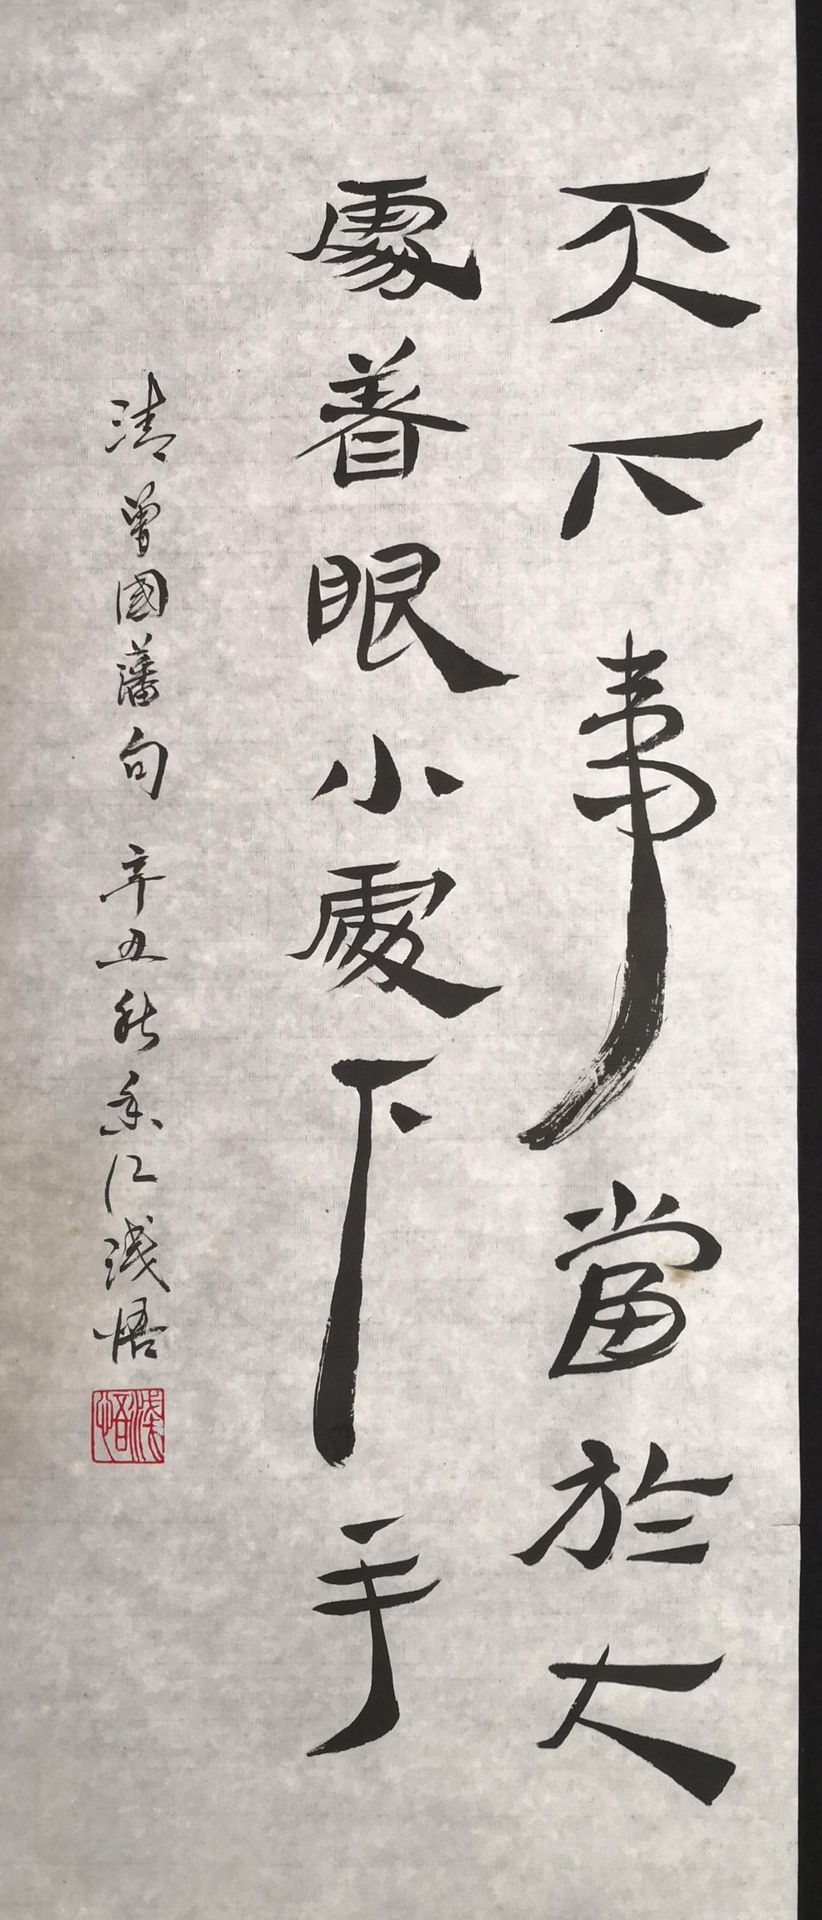 天下事當於大
處着眼小處下手
清曾國藩句 辛丑秋香江淺悟
淺悟